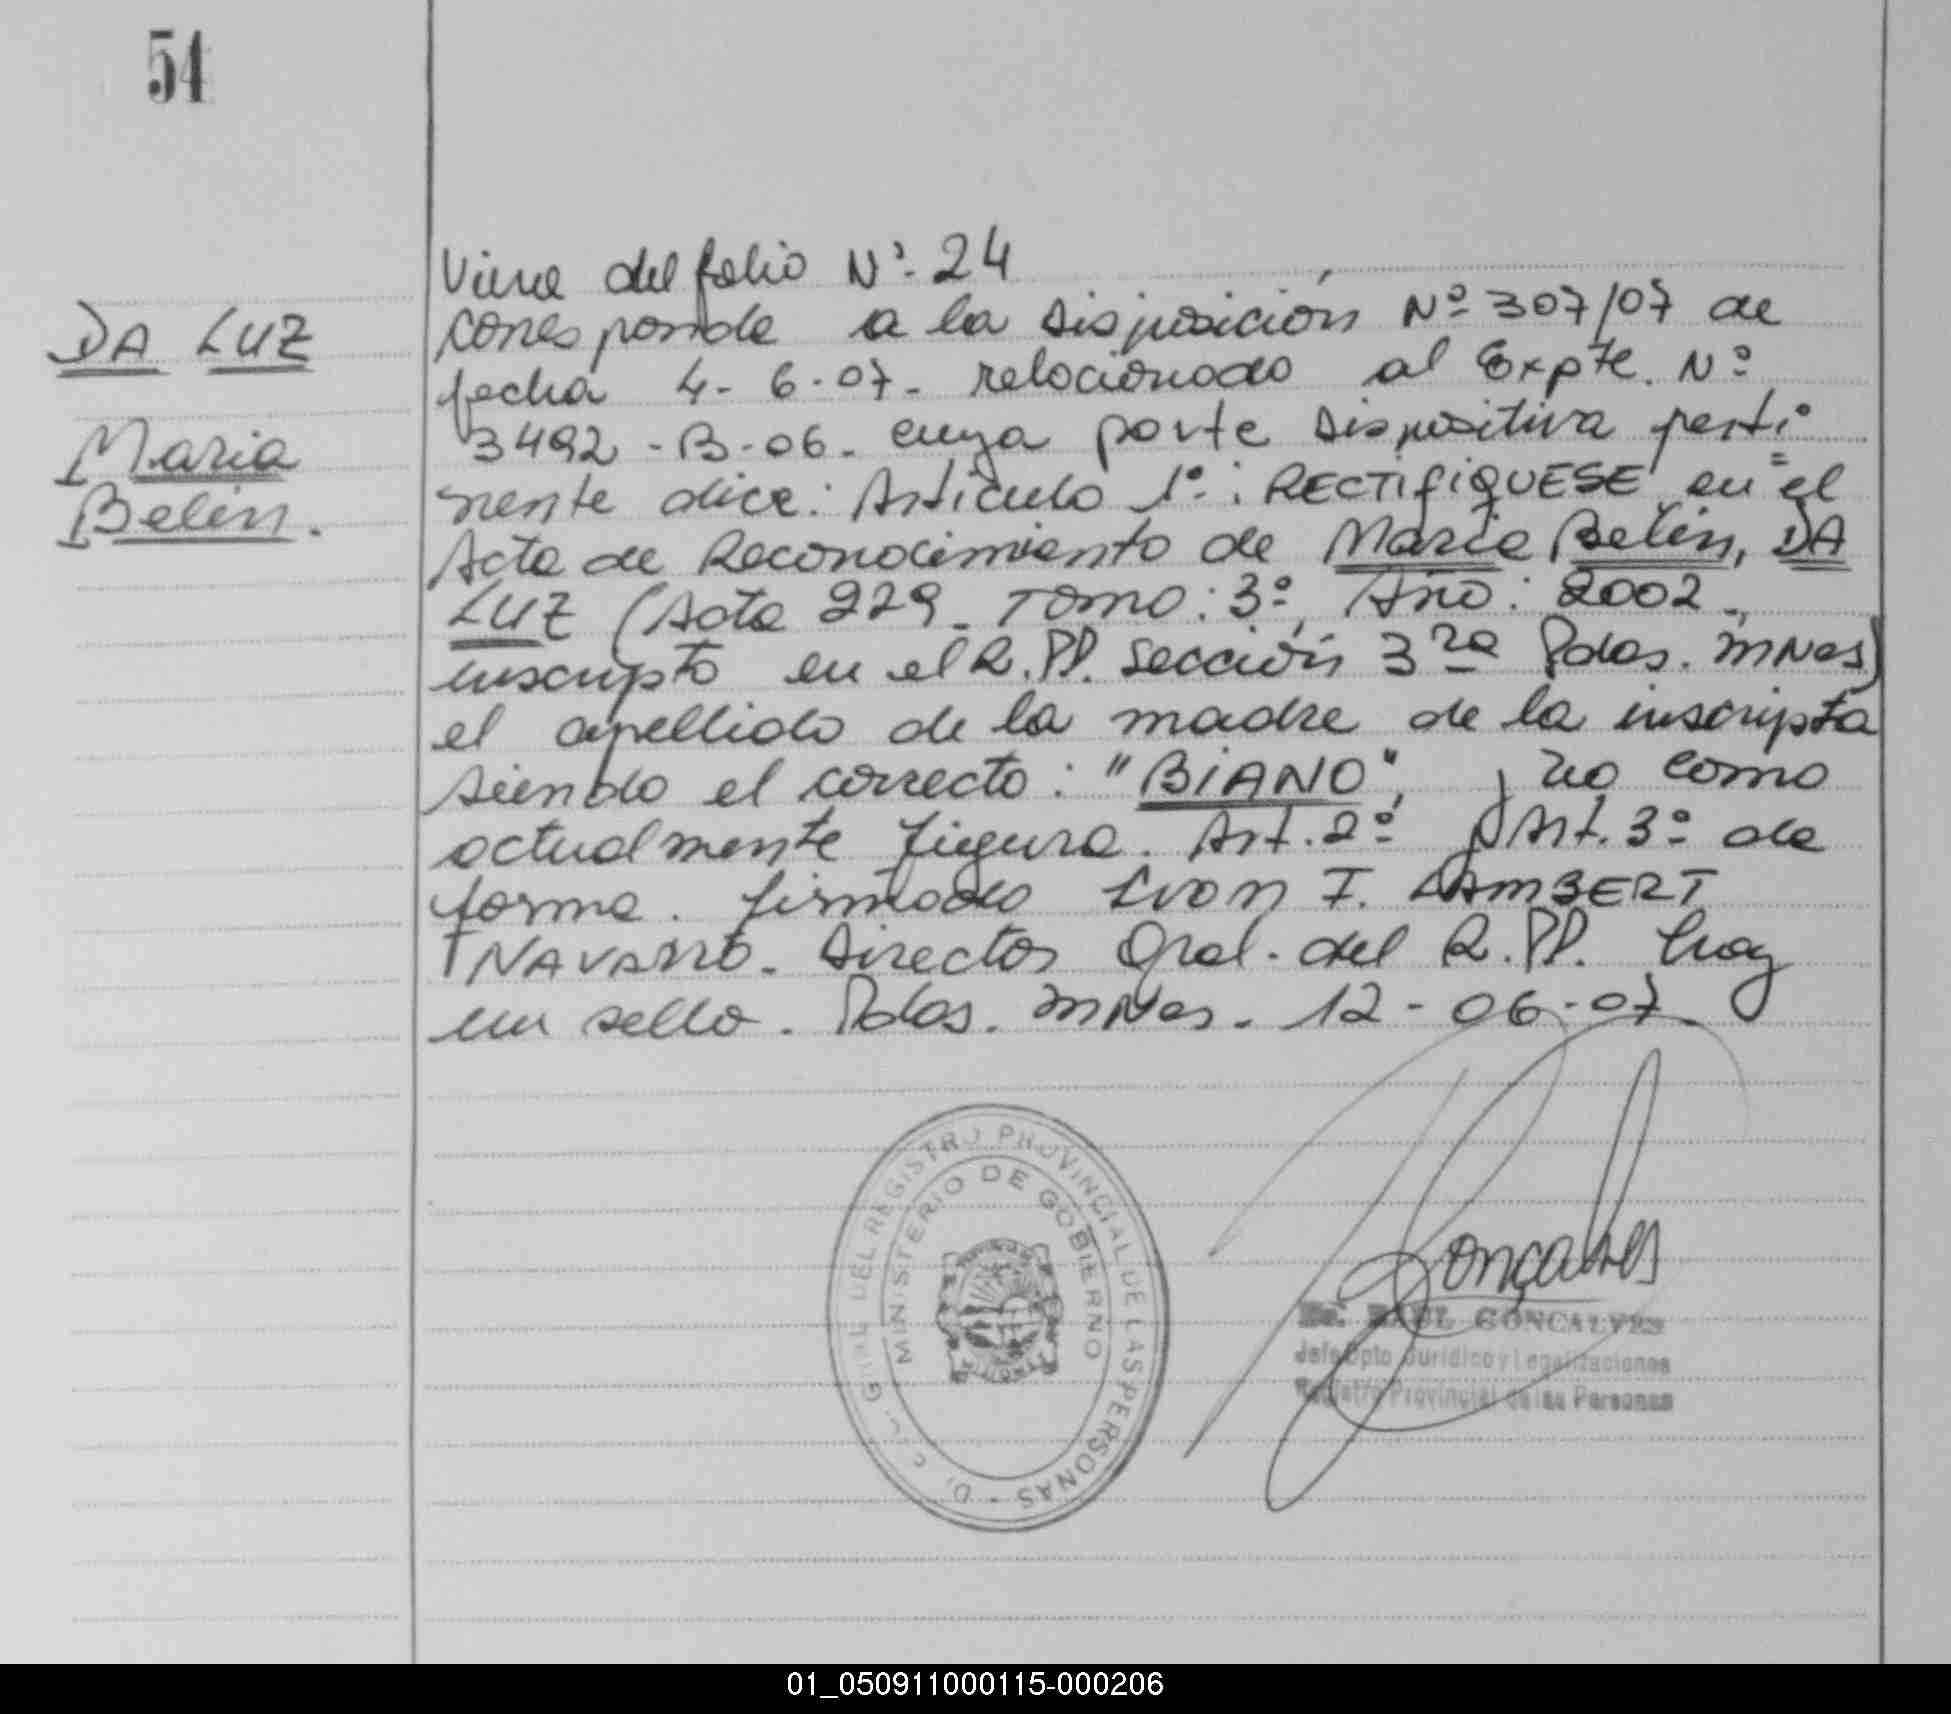 54
DA LUZ
Maria
Belén.
Viene del folio Nº. 24
corresponde a la disposición Nº 307/07 de
fecha 4-6-07- relacionado al Expte. Nº
3492-B-06- cuya parte dispositiva perti
nente dice: Articulo 1º: RECTIFIQUESE en el
Acta de Reconocimiento de Maria Belén, DA
LUZ (Acta 229_ Tomo: 3º, Año: 2002_
inscripto en el R.PP. Sección 3ra Pdas. MNes)
el apellido de la madre de la inscripta
siendo el correcto: "BIANO", y no como
actualmente figura. Art. 2º y Art. 3º de
forma. firmado Ivan F. LAMBERT
NAVARRO_ Director Gral. del R.PP. hay
un sello. Pdas. MNes_ 12-06-07_
GRAL DEL REGISTRO PROVINCIAL DE LAS PERSONAS
MINISTERIO DE GOBIERNO
Gonçalves
Dr. RAUL GONCALVES
Jefe Dpto Juridico y Legalizaciones
Registro Provincial de las Personas
01_050911000115-000206